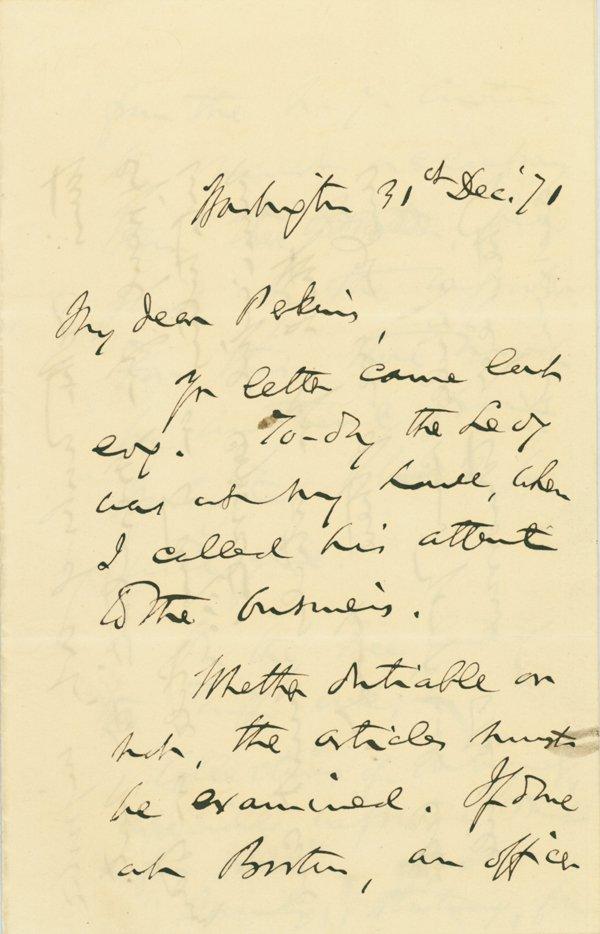 Washington 31st Dec. '71
My dear Perkins,
Yr letter came last
evg. To-day the Secy
was at my house, when
I called his attent
to the business.
Whether dutiable or
not, the articles must
be examined. If done
at Boston, an officer